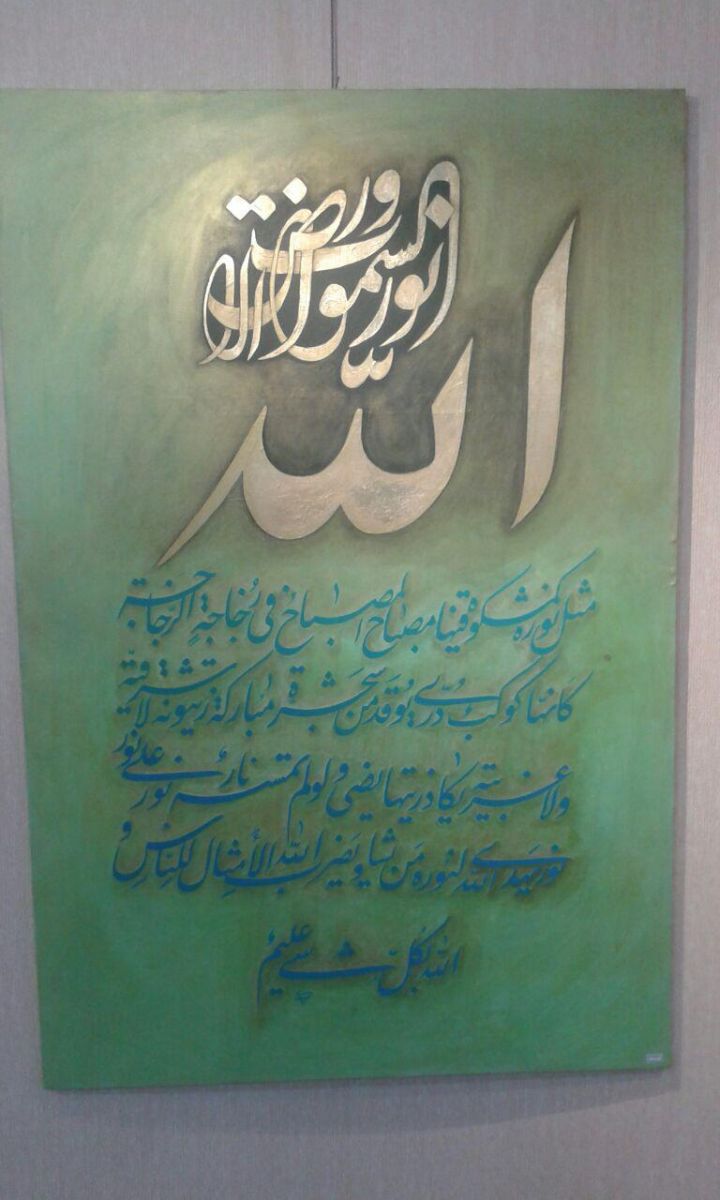 الله نور السموات والارض
مثل نوره كمشكوة فيها مصباح المصباح في زجاجة الزجاجة
كانها كوكب دري يوقد من شجرة مباركة زيتونة لا شرقية
ولا غربية يكاد زيتها يضيء ولو لم تمسسه نار نور على نور
نور يهدي الله لنوره من يشا ويضرب الله الأمثال للناس و
الله بكل شيء عليم